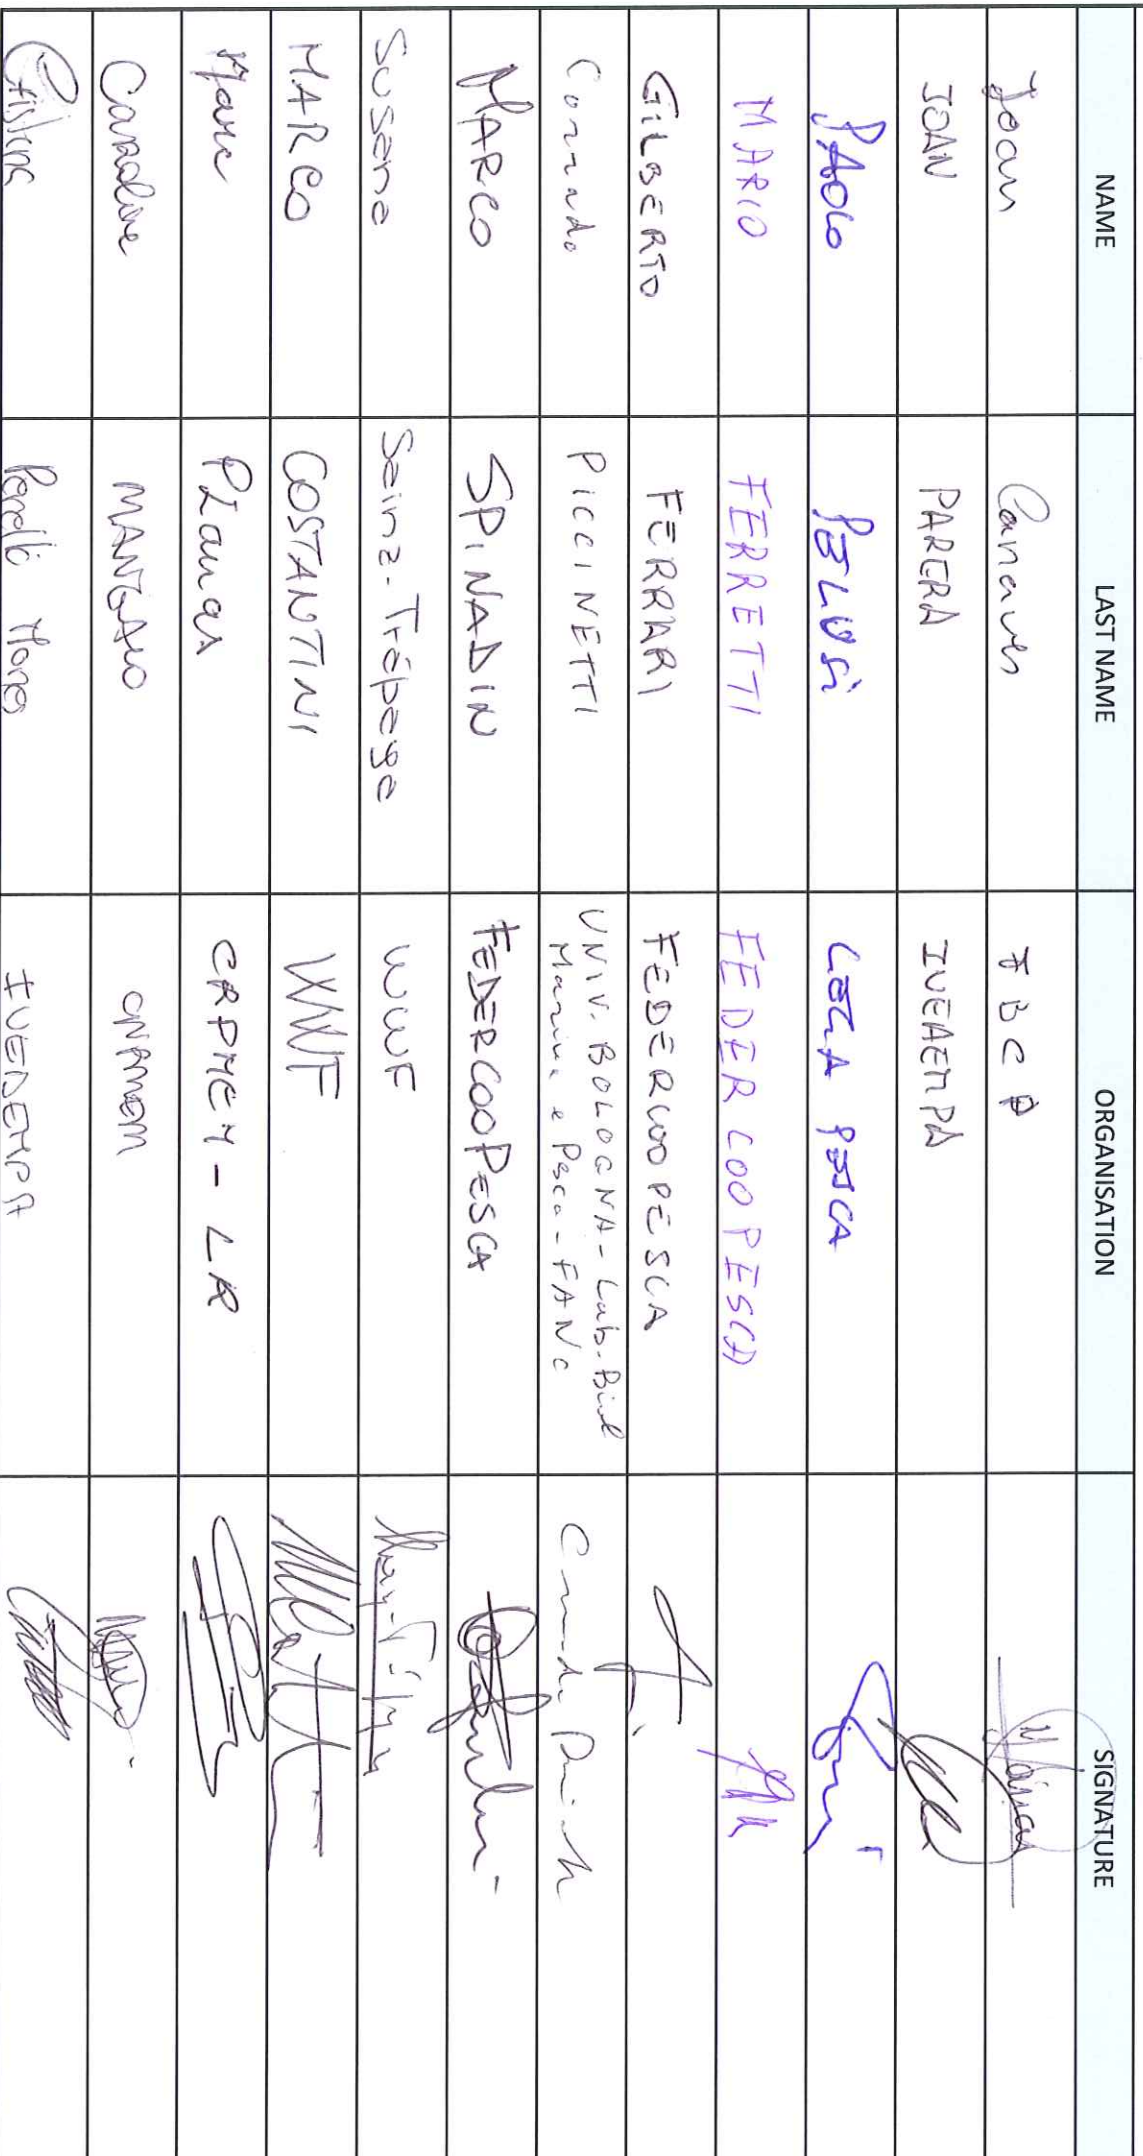 NAME LAST NAME ORGANISATION SIGNATURE
Joan Canaves FBCP
JOAN PARERA INEAEMPA
PAOLO PELUSI LEGA PESCA
MARIO FERRETTI FEDERCOOPESCA
GILBERTO FERRARI FEDERCOOPESCA
Corrado PICCINETTI UNIV. BOLOGNA - Lab. Biol
Marina e Pesca - FANO
MARCO SPINADIN FEDERCOOPESCA
Susana Sainz-Trápaga WWF
MARCO COSTANTINI WWF
Marc Planas CRPMEM-LR
Caroline MANGALO CNPMEM
Cristina